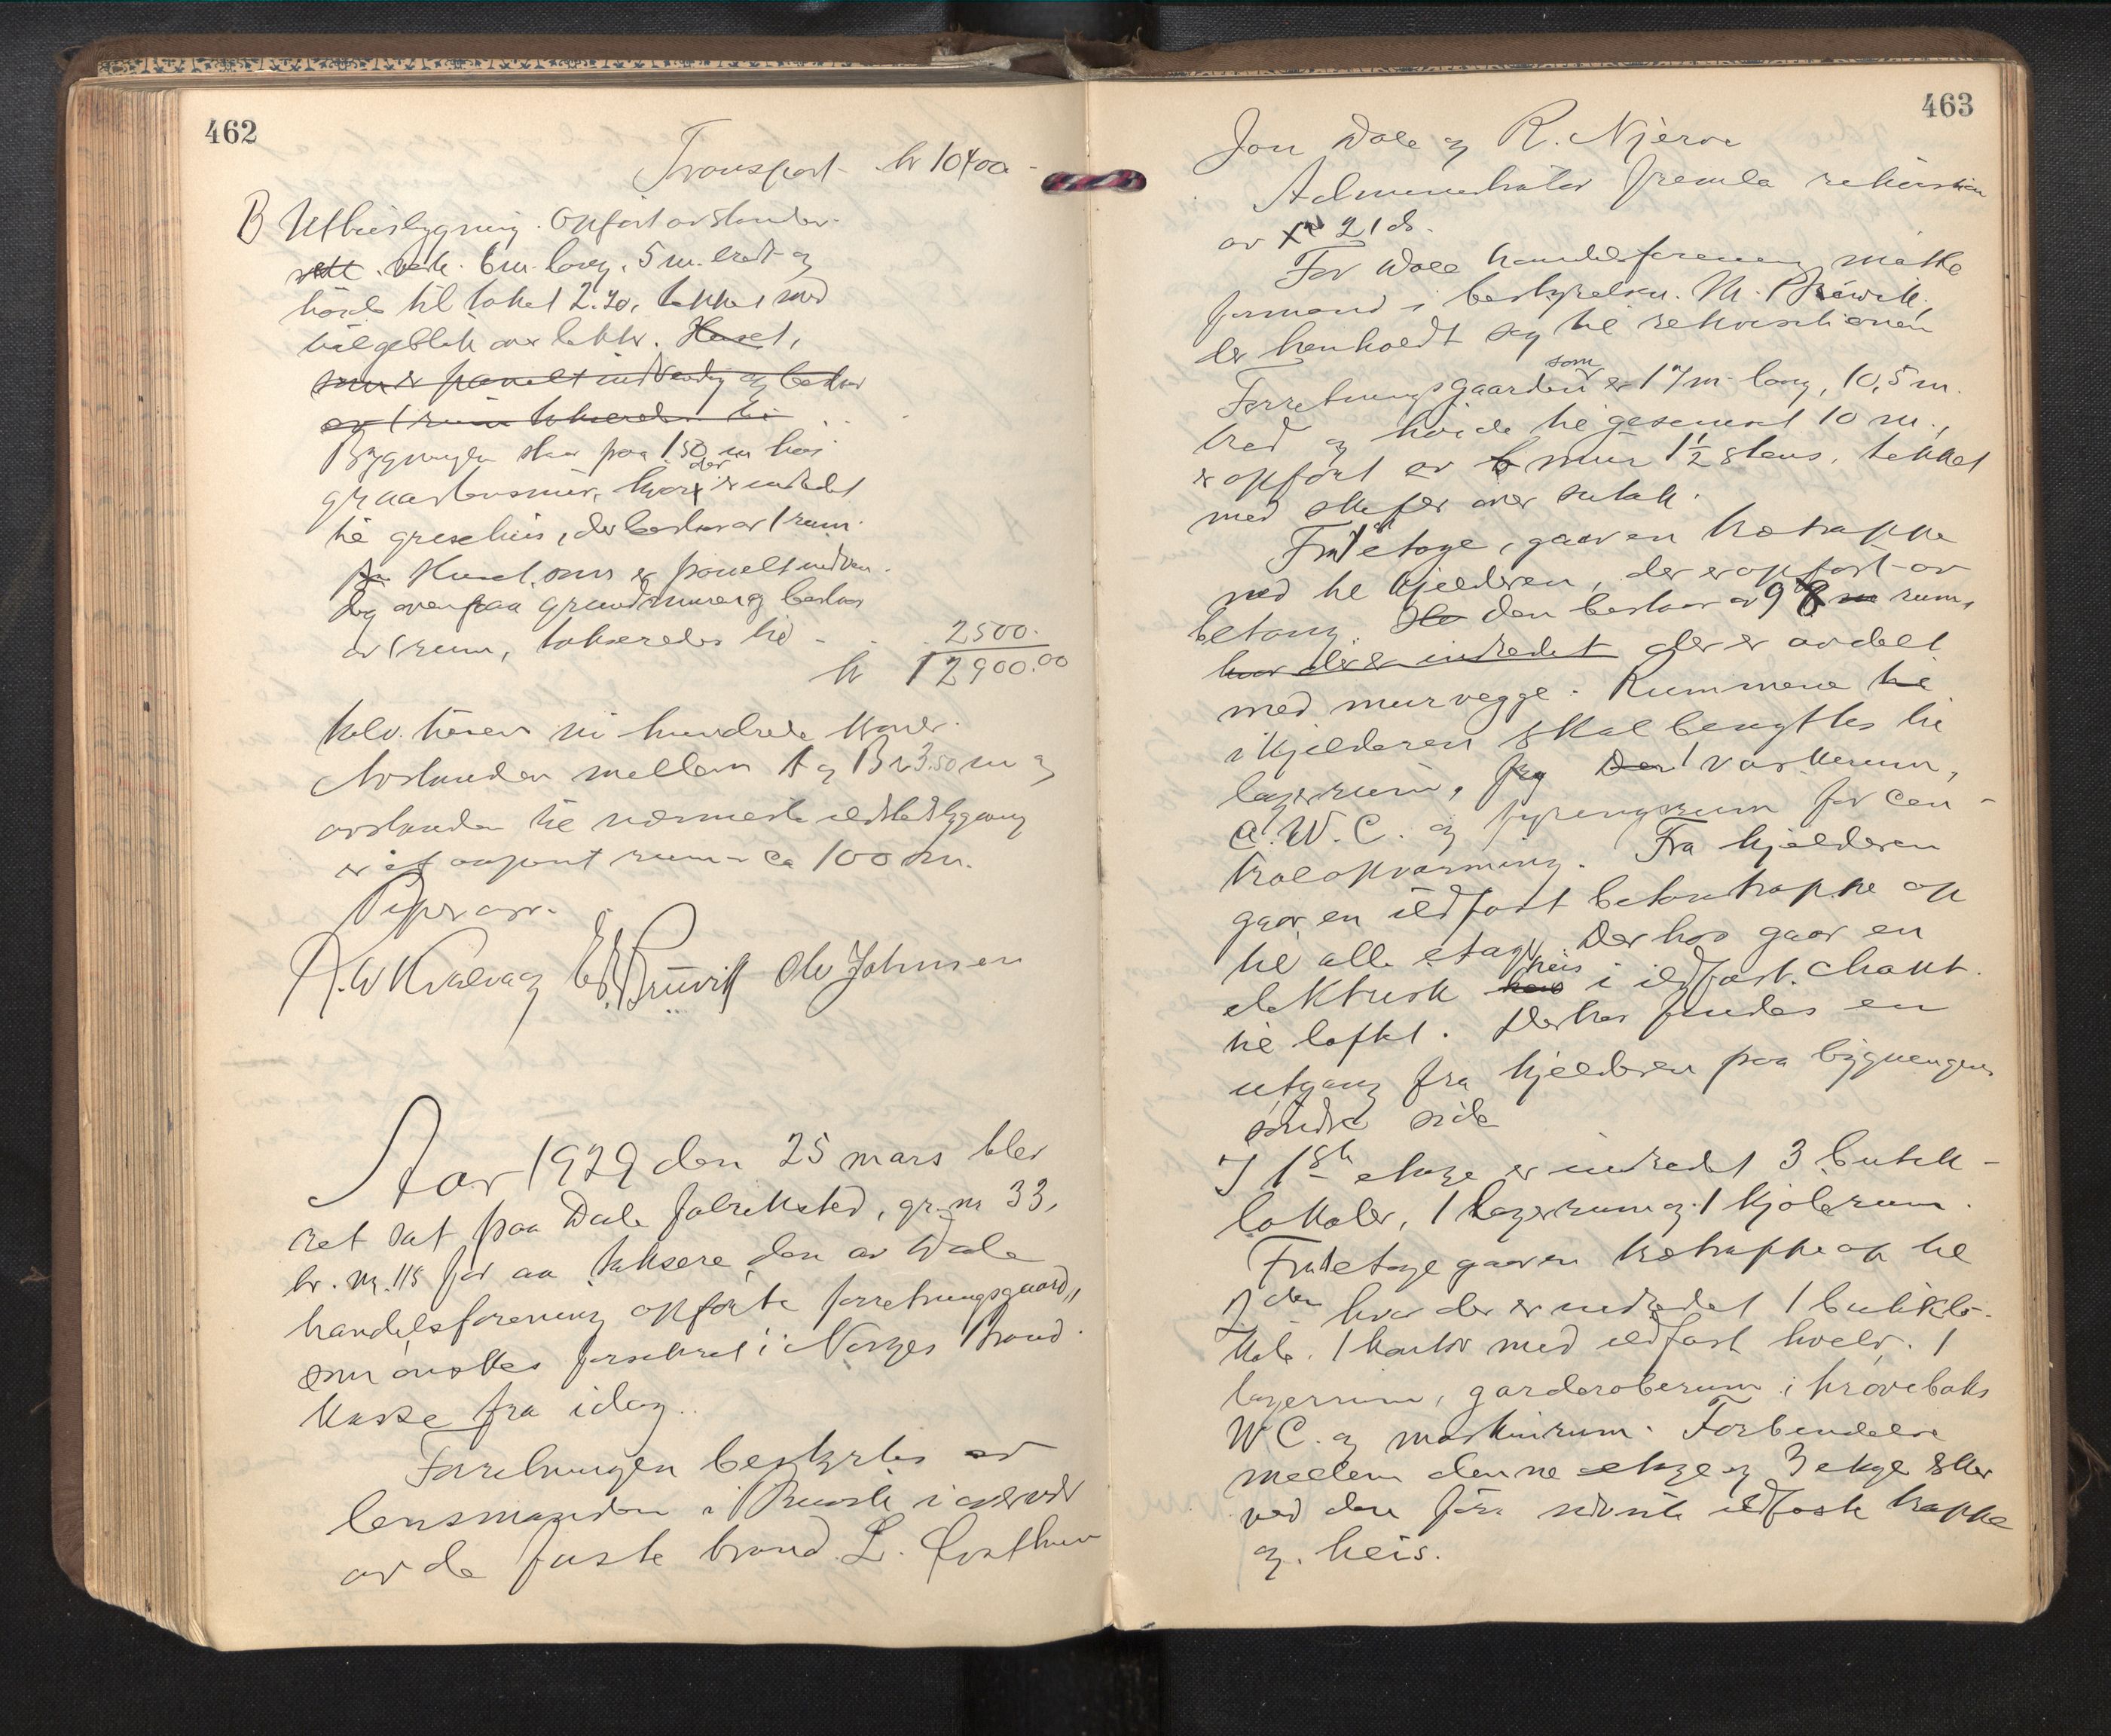 462
Transport kr 10400 -
B Uthusbygning. Opført av stender
verk. 6 m. lang, 5 m. bredt og
høide til taket 2.70, tækket med
bølgeblik over lekter. Huset,
som er panelt indvendig og bestaar
av 1 rum takseredes til
Bygningen staar paa 1.50 m høi
graastensmur, hvor der er indredet
til grisehus, der bestaar av 1 rum.
Huset som er panelt indven-
dig ovenpaa grundmuren og bestaar
av 1 rum, takseredes til - 2500.
kr 12900.00
tolv tusen ni hundrede kroner.
Avstanden mellem A og B er 3.50 m og
avstanden til nærmeste ildstedsbygning
er i et aapent rum - ca 100 m.
A. W Kvalvaag Ed. Bruvik Ole Johnsen
Aar 1929 den 25 mars blev
ret sat paa Dale fabriksted, gr. nr 33,
br. nr. 115 for aa taksere den av Dale
handelsforening opførte forretningsgaard,
som ønskes forsikret i Norges Brand-
kasse fra idag.
Forretningen bestyrtes av
lensmanden i Bruvik i nærvær
av de faste brand. L.
463
Jon Dale og R. Njerve
Administrator fremla rekvisition
av 21 ds.
For Dale handelsforening møtte
formand i bestyrelsen. M. Bruvik,
der henholdt seg til rekvisitionen
Forretningsgaarden som er 17 m. lang, 10,5 m.
bred og høide til gesemset 10 m.,
er opført av mur 1½ stens, tekket
med skifer over sutak.
Fra 1ste etage, gaar en trætrappe
ned til kjelderen, der er opført av
betong. Den bestaar av 9 rum,
hvor der er indredet der er avdelt
med murvegge. Rummene
i kjelderen skal benyttes til
lagerrum, 1 vaskerum,
W.C. og fyringsrum for cen-
tralopvarming. Fra kjelderen
gaar en ildfast betontrappe op
til alle etager. Derhos gaar en
elektrisk heis i ildfast chakt
til loftet. Derhos findes en
utgang fra kjelderen paa bygningens
søndre side
I 1ste etage er indredet 3 butik-
lokaler, 1 lagerrum og 1 kjølerum.
Fra 1 etage gaar en trætrappe op til
2den hvor der er indredet 1 butiklo-
kale. 1 kontor med ildfast hvelv. 1
lagerrum, garderoberum i prøveboks
W C. og maskinrum. Forbindelse
mellem denne etage og 3 etage sker
ved den før nævnte ildfaste trappe
og heis.